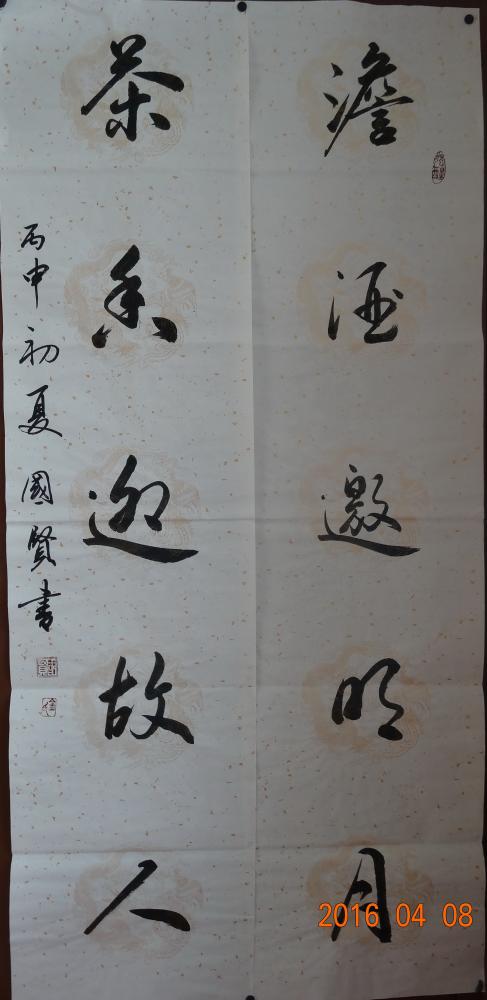 澹酒邀明月
茶香迎故人
丙申初夏國賢书
2016 04 08